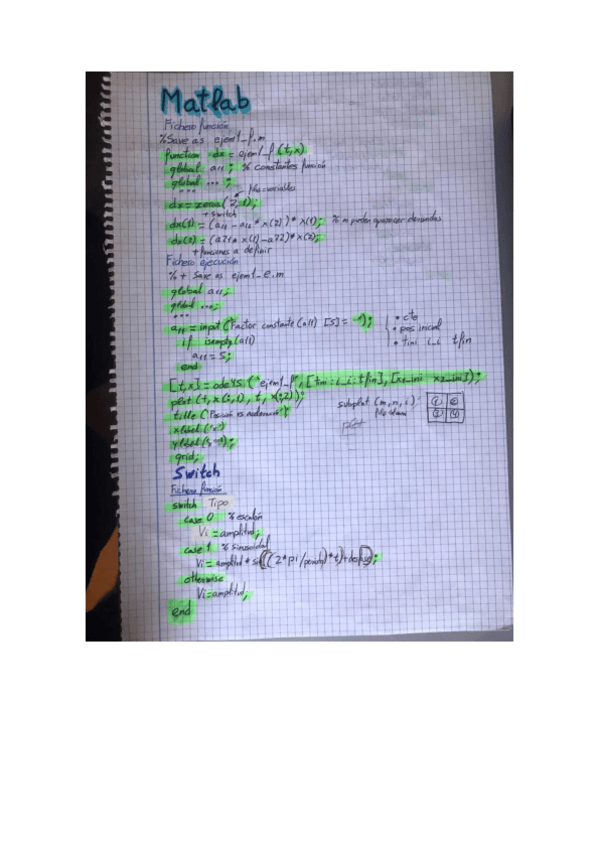 Matlab
Fichero función
%Save as ejem1_f.m
function dx = ejem1_f(t,x)
global a11; % constantes función
global ...;
...
dx=zeros(2,1);
+ switch
dx(1) = (a11 - a12 * x(2)) * x(1); % no pueden aparecer derivadas
dx(2) = (a21 * x(1) - a22) * x(2);
+ funciones a definir
Fichero ejecución
% + Save as ejem1_e.m
global a11;
global ...;
...
a11 = input('Factor constante (a11) [5] = ');
if isempty(a11)
a11 = 5;
end
• cte
• pos inicial
• tini i_i tfin
[t,x] = ode45('ejem1_f', [tini:i_i:tfin], [x1_ini x2_ini]);
plot(t,x(:,1), t, x(:,2));
title('
xlabel('
ylabel(
grid;
subplot (m,n,i)
1 2
3 4
Switch
Fichero función
switch Tipo
case 0 % escalón
Vi = amplitud;
case 1 % sinusoidal
Vi = amplitud * (((2*pi/periodo)*t)+desfase);
otherwise
Vi = amplitud;
end